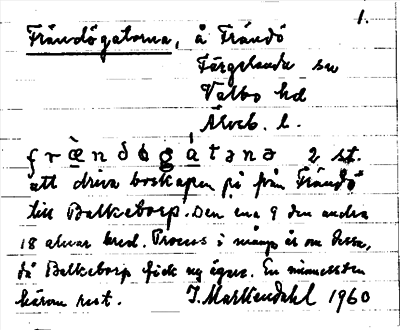 1.
Frändögatorna, å Frändö
Färgelanda sn
Valbo hd
Älvsb. l.
fræ̀ndögátənə 2 st.
att driva boskapen på från Frändö
till Balkeborp. Den ena 9 den andra
18 alnar bred. Process i många år om dessa,
då Balkeborp fick ny ägare. En minnessten
härom rest. J. Markendahl 1960